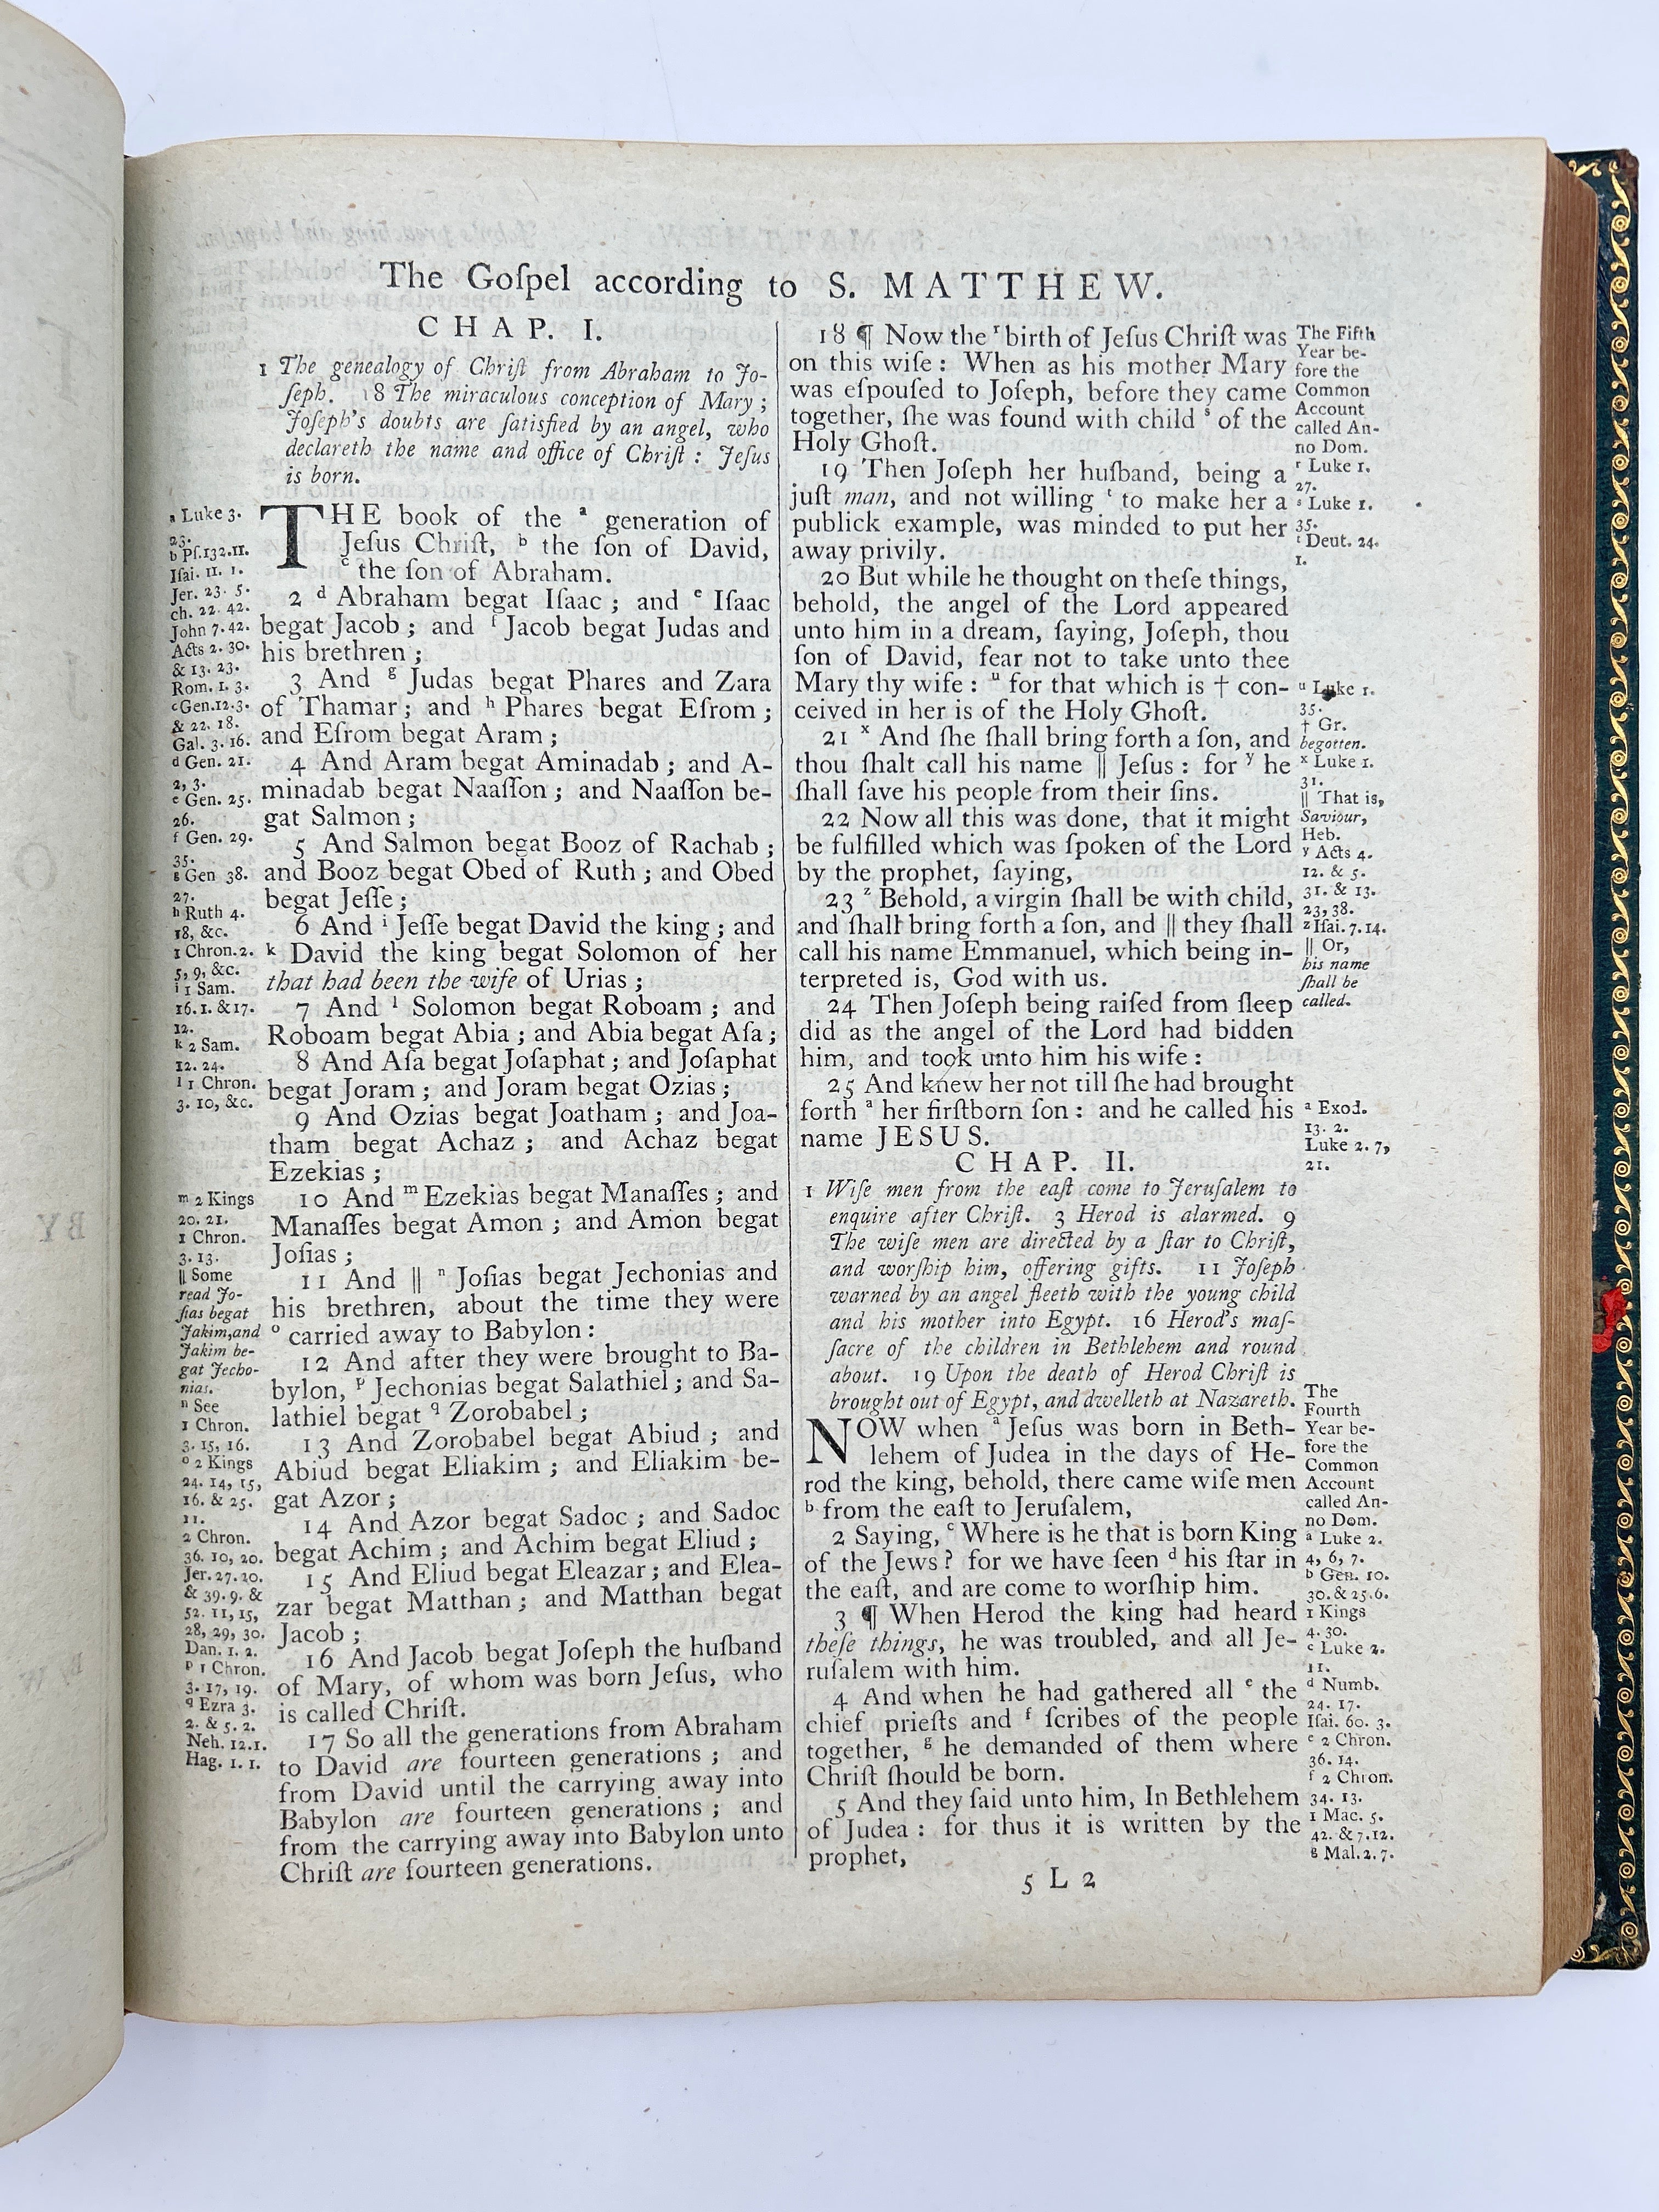 The Goſpel according to S. MATTHEW.
CHAP. I.
1 The genealogy of Chriſt from Abraham to Jo-
ſeph. 18 The miraculous conception of Mary ;
Joſeph's doubts are ſatisfied by an angel, who
declareth the name and office of Chriſt : Jeſus
is born.
THE book of the ª generation of
Jeſus Chriſt, ᵇ the ſon of David,
ᶜ the ſon of Abraham.
2 ᵈ Abraham begat Iſaac ; and ᵉ Iſaac
begat Jacob ; and ᶠ Jacob begat Judas and
his brethren ;
3 And ᵍ Judas begat Phares and Zara
of Thamar ; and ʰ Phares begat Eſrom ;
and Eſrom begat Aram ;
4 And Aram begat Aminadab ; and A-
minadab begat Naaſſon ; and Naaſſon be-
gat Salmon ;
5 And Salmon begat Booz of Rachab ;
and Booz begat Obed of Ruth ; and Obed
begat Jeſſe ;
6 And ⁱ Jeſſe begat David the king ; and
ᵏ David the king begat Solomon of her
that had been the wife of Urias ;
7 And ˡ Solomon begat Roboam ; and
Roboam begat Abia ; and Abia begat Aſa ;
8 And Aſa begat Joſaphat ; and Joſaphat
begat Joram ; and Joram begat Ozias ;
9 And Ozias begat Joatham ; and Joa-
tham begat Achaz ; and Achaz begat
Ezekias ;
10 And ᵐ Ezekias begat Manaſſes ; and
Manaſſes begat Amon ; and Amon begat
Joſias ;
11 And ‖ ⁿ Joſias begat Jechonias and
his brethren, about the time they were
ᵒ carried away to Babylon :
12 And after they were brought to Ba-
bylon, ᵖ Jechonias begat Salathiel ; and Sa-
lathiel begat q Zorobabel ;
13 And Zorobabel begat Abiud ; and
Abiud begat Eliakim ; and Eliakim be-
gat Azor ;
14 And Azor begat Sadoc ; and Sadoc
begat Achim ; and Achim begat Eliud ;
15 And Eliud begat Eleazar ; and Elea-
zar begat Matthan ; and Matthan begat
Jacob ;
16 And Jacob begat Joſeph the huſband
of Mary, of whom was born Jeſus, who
is called Chriſt.
17 So all the generations from Abraham
to David are fourteen generations ; and
from David until the carrying away into
Babylon are fourteen generations ; and
from the carrying away into Babylon unto
Chriſt are fourteen generations.
a Luke 3.
23.
b Pſ.132.11.
Iſai. 11. 1.
Jer. 23. 5.
ch. 22. 42.
John 7. 42.
Acts 2. 30.
& 13. 23.
Rom. 1. 3.
c Gen.12.3.
& 22. 18.
Gal. 3. 16.
d Gen. 21.
2, 3.
e Gen. 25.
26.
f Gen. 29.
35.
g Gen 38.
27.
h Ruth 4.
18, &c.
1 Chron. 2.
5, 9, &c.
i 1 Sam.
16. 1. &17.
12.
k 2 Sam.
12. 24.
l 1 Chron.
3. 10, &c.
m 2 Kings
20. 21.
1 Chron.
3. 13.
‖ Some
read Jo-
ſias begat
Jakim, and
Jakim be-
gat Jecho-
nias.
n See
1 Chron.
3. 15, 16.
o 2 Kings
24. 14, 15,
16. & 25.
11.
2 Chron.
36. 10, 20.
Jer. 27. 20.
& 39. 9. &
52. 11, 15,
28, 29, 30.
Dan. 1. 2.
p 1 Chron.
3. 17, 19.
q Ezra 3.
2. & 5. 2.
Neh. 12.1.
Hag. 1. 1.
18 ¶ Now the ʳ birth of Jeſus Chriſt was
on this wiſe : When as his mother Mary
was eſpouſed to Joſeph, before they came
together, ſhe was found with child ˢ of the
Holy Ghoſt.
19 Then Joſeph her huſband, being a
juſt man, and not willing ᵗ to make her a
publick example, was minded to put her
away privily.
20 But while he thought on theſe things,
behold, the angel of the Lord appeared
unto him in a dream, ſaying, Joſeph, thou
ſon of David, fear not to take unto thee
Mary thy wife : ᵘ for that which is † con-
ceived in her is of the Holy Ghoſt.
21 ˣ And ſhe ſhall bring forth a ſon, and
thou ſhalt call his name ‖ Jeſus : for ʸ he
ſhall ſave his people from their ſins.
22 Now all this was done, that it might
be fulfilled which was ſpoken of the Lord
by the prophet, ſaying,
23 ᶻ Behold, a virgin ſhall be with child,
and ſhall bring forth a ſon, and ‖ they ſhall
call his name Emmanuel, which being in-
terpreted is, God with us.
24 Then Joſeph being raiſed from ſleep
did as the angel of the Lord had bidden
him, and took unto him his wife :
25 And knew her not till ſhe had brought
forth ª her firſtborn ſon : and he called his
name JESUS.
CHAP. II.
1 Wiſe men from the eaſt come to Jeruſalem to
enquire after Chriſt. 3 Herod is alarmed. 9
The wiſe men are directed by a ſtar to Chriſt,
and worſhip him, offering gifts. 11 Joſeph
warned by an angel fleeth with the young child
and his mother into Egypt. 16 Herod's maſ-
ſacre of the children in Bethlehem and round
about. 19 Upon the death of Herod Chriſt is
brought out of Egypt, and dwelleth at Nazareth.
NOW when ª Jeſus was born in Beth-
lehem of Judea in the days of He-
rod the king, behold, there came wiſe men
ᵇ from the eaſt to Jeruſalem,
2 Saying, ᶜ Where is he that is born King
of the Jews ? for we have ſeen ᵈ his ſtar in
the eaſt, and are come to worſhip him.
3 ¶ When Herod the king had heard
theſe things, he was troubled, and all Je-
ruſalem with him.
4 And when he had gathered all ᵉ the
chief prieſts and ᶠ ſcribes of the people
together, ᵍ he demanded of them where
Chriſt ſhould be born.
5 And they ſaid unto him, In Bethlehem
of Judea : for thus it is written by the
prophet,
The Fifth
Year be-
fore the
Common
Account
called An-
no Dom.
r Luke 1.
27.
s Luke 1.
35.
t Deut. 24.
1.
u Luke 1.
35.
† Gr.
begotten.
x Luke 1.
31.
‖ That is,
Saviour,
Heb.
y Acts 4.
12. & 5.
31. & 13.
23, 38.
z Iſai. 7. 14.
‖ Or,
his name
ſhall be
called.
a Exod.
13. 2.
Luke 2. 7,
21.
The
Fourth
Year be-
fore the
Common
Account
called An-
no Dom.
a Luke 2.
4, 6, 7.
b Gen. 10.
30. & 25.6.
1 Kings
4. 30.
c Luke 2.
11.
d Numb.
24. 17.
Iſai. 60. 3.
e 2 Chron.
36. 14.
f 2 Chron.
34. 13.
1 Mac. 5.
42. & 7.12.
g Mal. 2. 7.
5 L 2